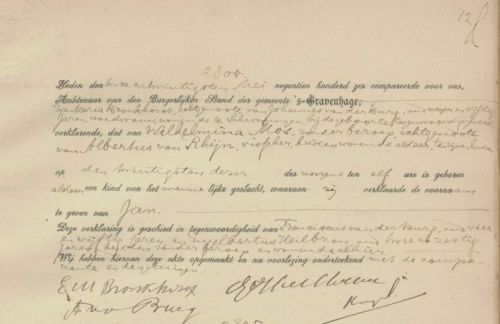 12
2800
Heden den twee en twintigsten Mei negentien honderd zes compareerde voor ons,
Ambtenaar van den Burgerlijken Stand der gemeente 's-Gravenhage,
Maria Bronkhorst, echtgenoote van Johannes van der Burg,
jaren, wonende te Scheveningen bij de geboorte tegenwoordig geweest
verklarende, dat van Wilhelmina Mos, zonder beroep, echtgenoote
van Albertus van Rhijn, visscher, beiden wonende aldaar, te zijnen huize
op den twintigsten dezer des morgens ten elf ure is geboren
aldaar een kind van het mannelijke geslacht, waaraan zij verklaarde de voornaam
te geven van Jan.
Deze verklaring is geschied in tegenwoordigheid van Franciscus van der Burg, vier
en vijftig jaren en Engelbertus Heilbron, twee en zestig
jaren, beiden zonder beroep en wonende alhier
Wij hebben hiervan deze akte opgemaakt en na voorlezing onderteekend met de compa
rante en de getuigen.
E M Bronkhorst
F v d Burg